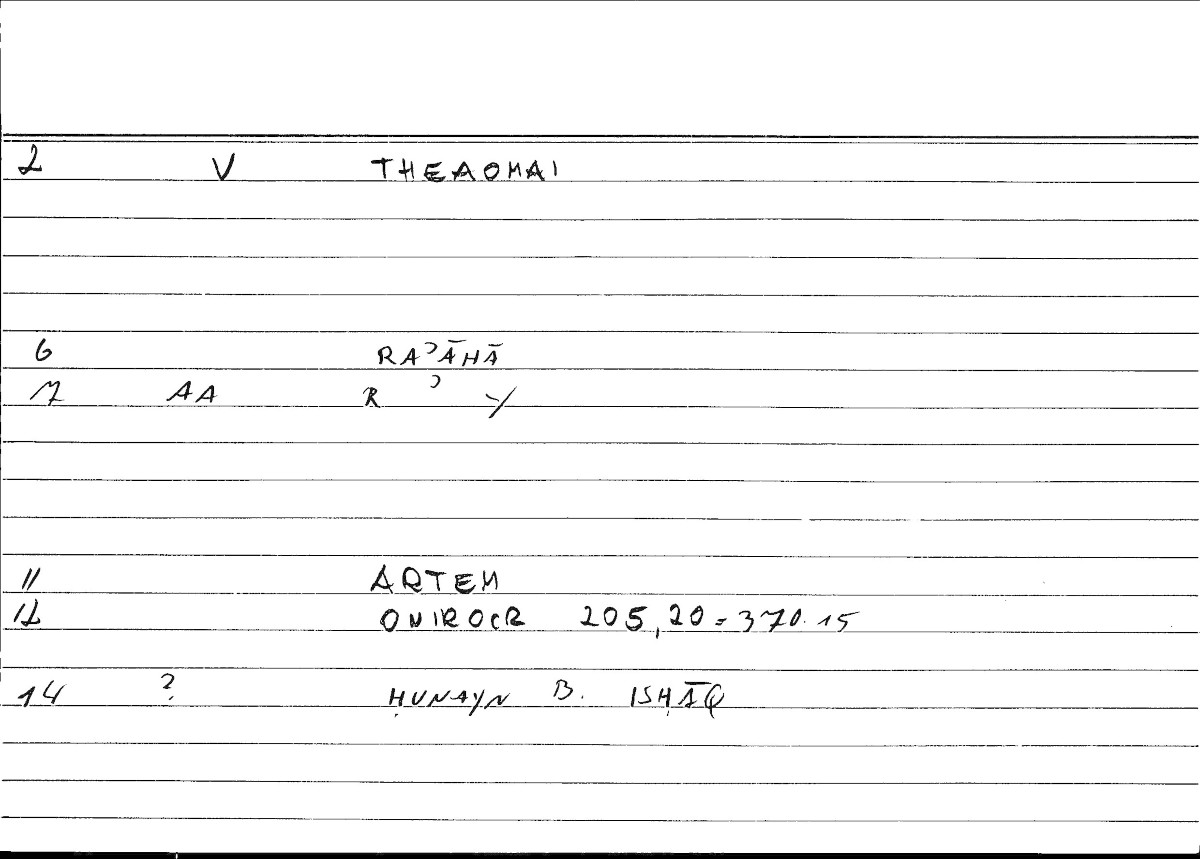 2 V THEAOMAI
6 RAʾĀHĀ
7 AA R ʾ -y
11 ARTEM
12 ONIROCR 205,20 = 370.15
14 ? ḤUNAYN B. ISḤĀQ